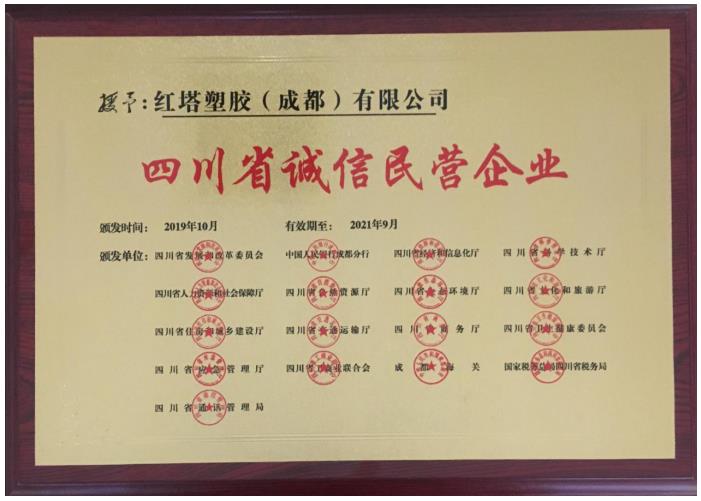 授予：红塔塑胶（成都）有限公司
四川省诚信民营企业
颁发时间： 2019年10月 有效期至： 2021年9月
颁发单位： 四川省发展和改革委员会 中国人民银行成都分行 四川省经济和信息化厅 四川省科学技术厅
四川省人力资源和社会保障厅 四川省自然资源厅 四川省生态环境厅 四川省文化和旅游厅
四川省住房和城乡建设厅 四川省交通运输厅 四川省商务厅 四川省卫生健康委员会
四川省应急管理厅 四川省工商业联合会 成都海关 国家税务总局四川省税务局
四川省通信管理局